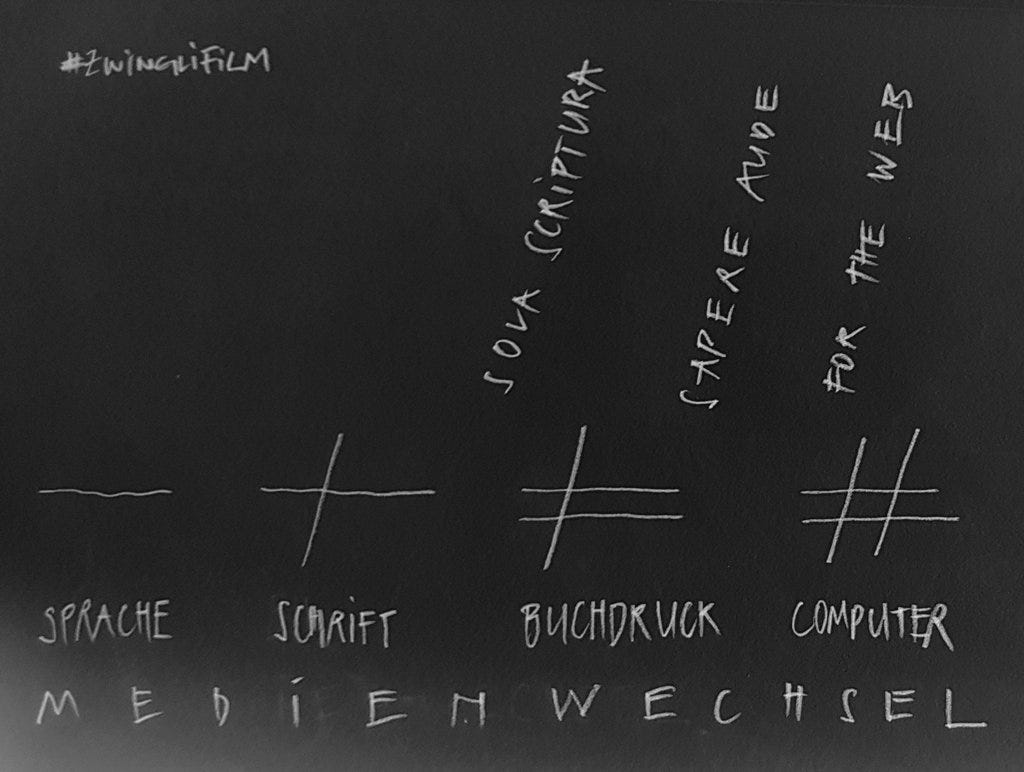 #ZWINGLIFILM
SOLA SCRIPTURA
SAPERE AUDE
FOR THE WEB
SPRACHE
SCHRIFT
BUCHDRUCK
COMPUTER
MEDIENWECHSEL